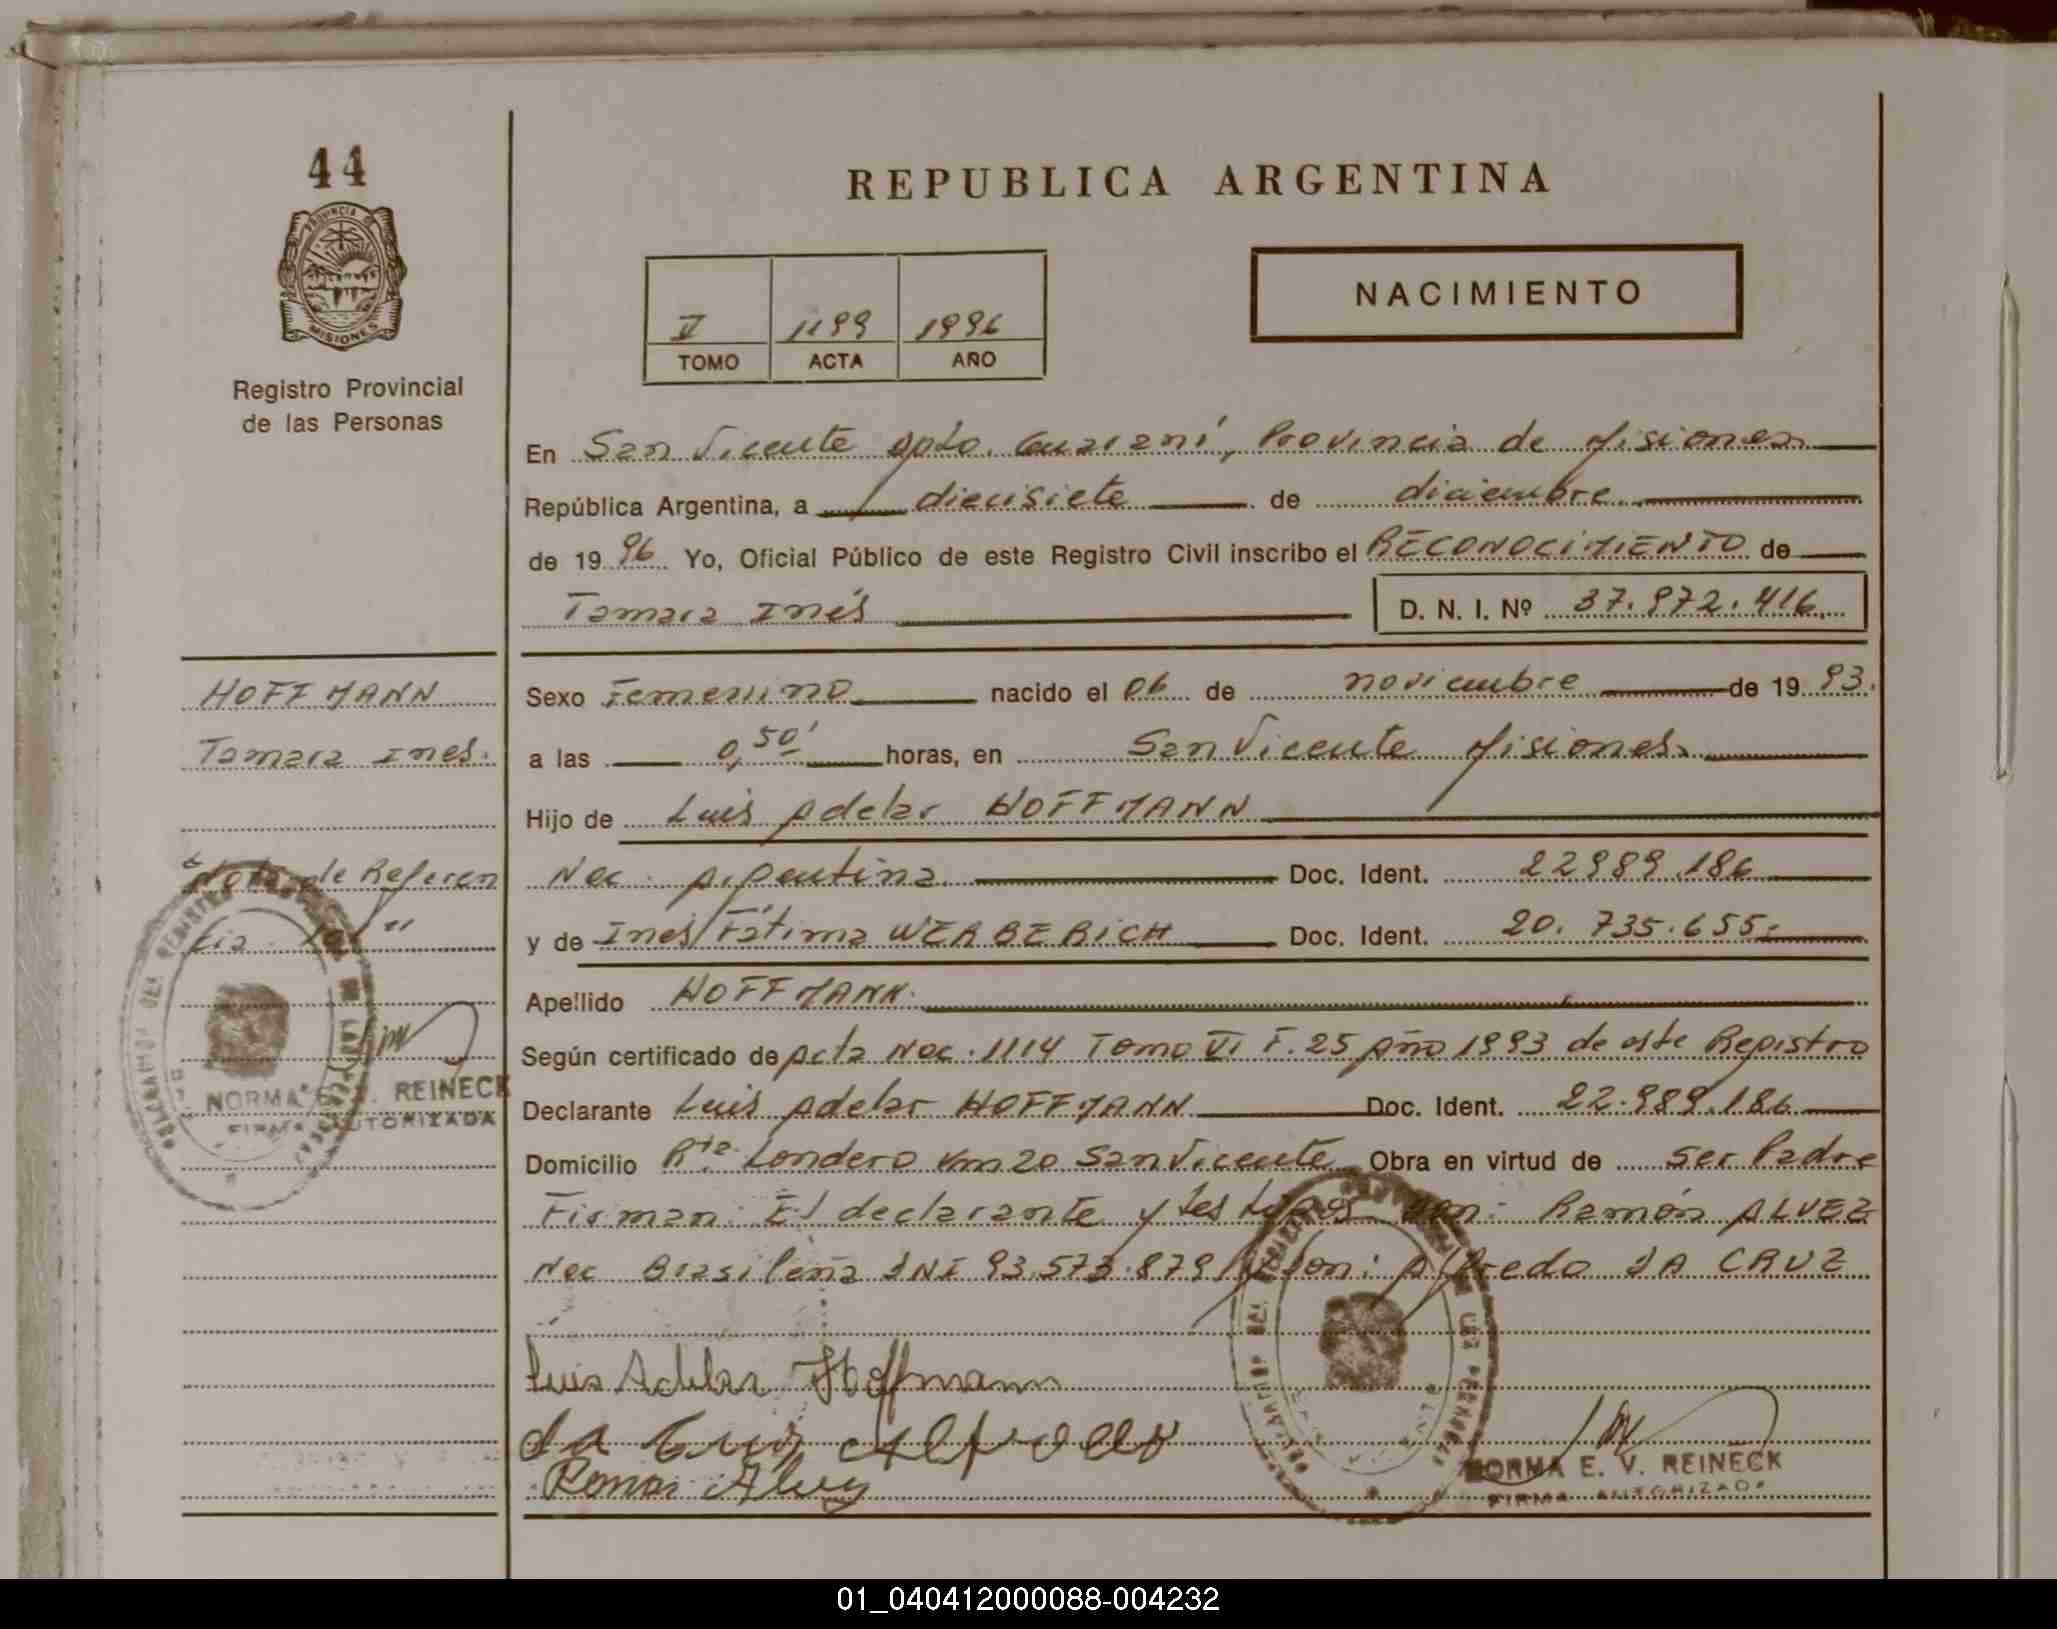 44
PROVINCIA DE
MISIONES
Registro Provincial
de las Personas
REPUBLICA ARGENTINA
V 1199 1996
TOMO ACTA AÑO
NACIMIENTO
En San Vicente Dpto. Guaraní, Provincia de Misiones
República Argentina, a diecisiete de diciembre
de 19 96 Yo, Oficial Público de este Registro Civil inscribo el RECONOCIMIENTO de
Tamara Inés D. N. I. Nº 37.972.416
HOFFMANN
Tamara Ines.
"Nota de Referen
cia "
NORMA E. V. REINECK
FIRMA AUTORIZADA
Sexo Femenino nacido el 06 de noviembre de 19 93.
a las 0,50' horas, en San Vicente Misiones
Hijo de Luis Adelar HOFFMANN
Nac. Argentina Doc. Ident. 22989.186
y de Ines Fátima WERBERICH Doc. Ident. 20.735.655.
Apellido HOFFMANN.
Según certificado de Acta Nac. 1114 Tomo VI F. 25 Año 1993 de este Registro
Declarante Luis Adelar HOFFMANN Doc. Ident. 22.989.186
Domicilio Rta. Londero Km 20 San Vicente Obra en virtud de ser Padre
Firman: El declarante y testigos Don: Ramón ALVEZ
Nac Brasileña DNI 93.573.879 y Don: Alfredo DA CRUZ
Luis Adelar Hoffmann
da Cruz Alfredo
Ramon Alvez
NORMA E. V. REINECK
FIRMA AUTORIZADA
01_040412000088-004232